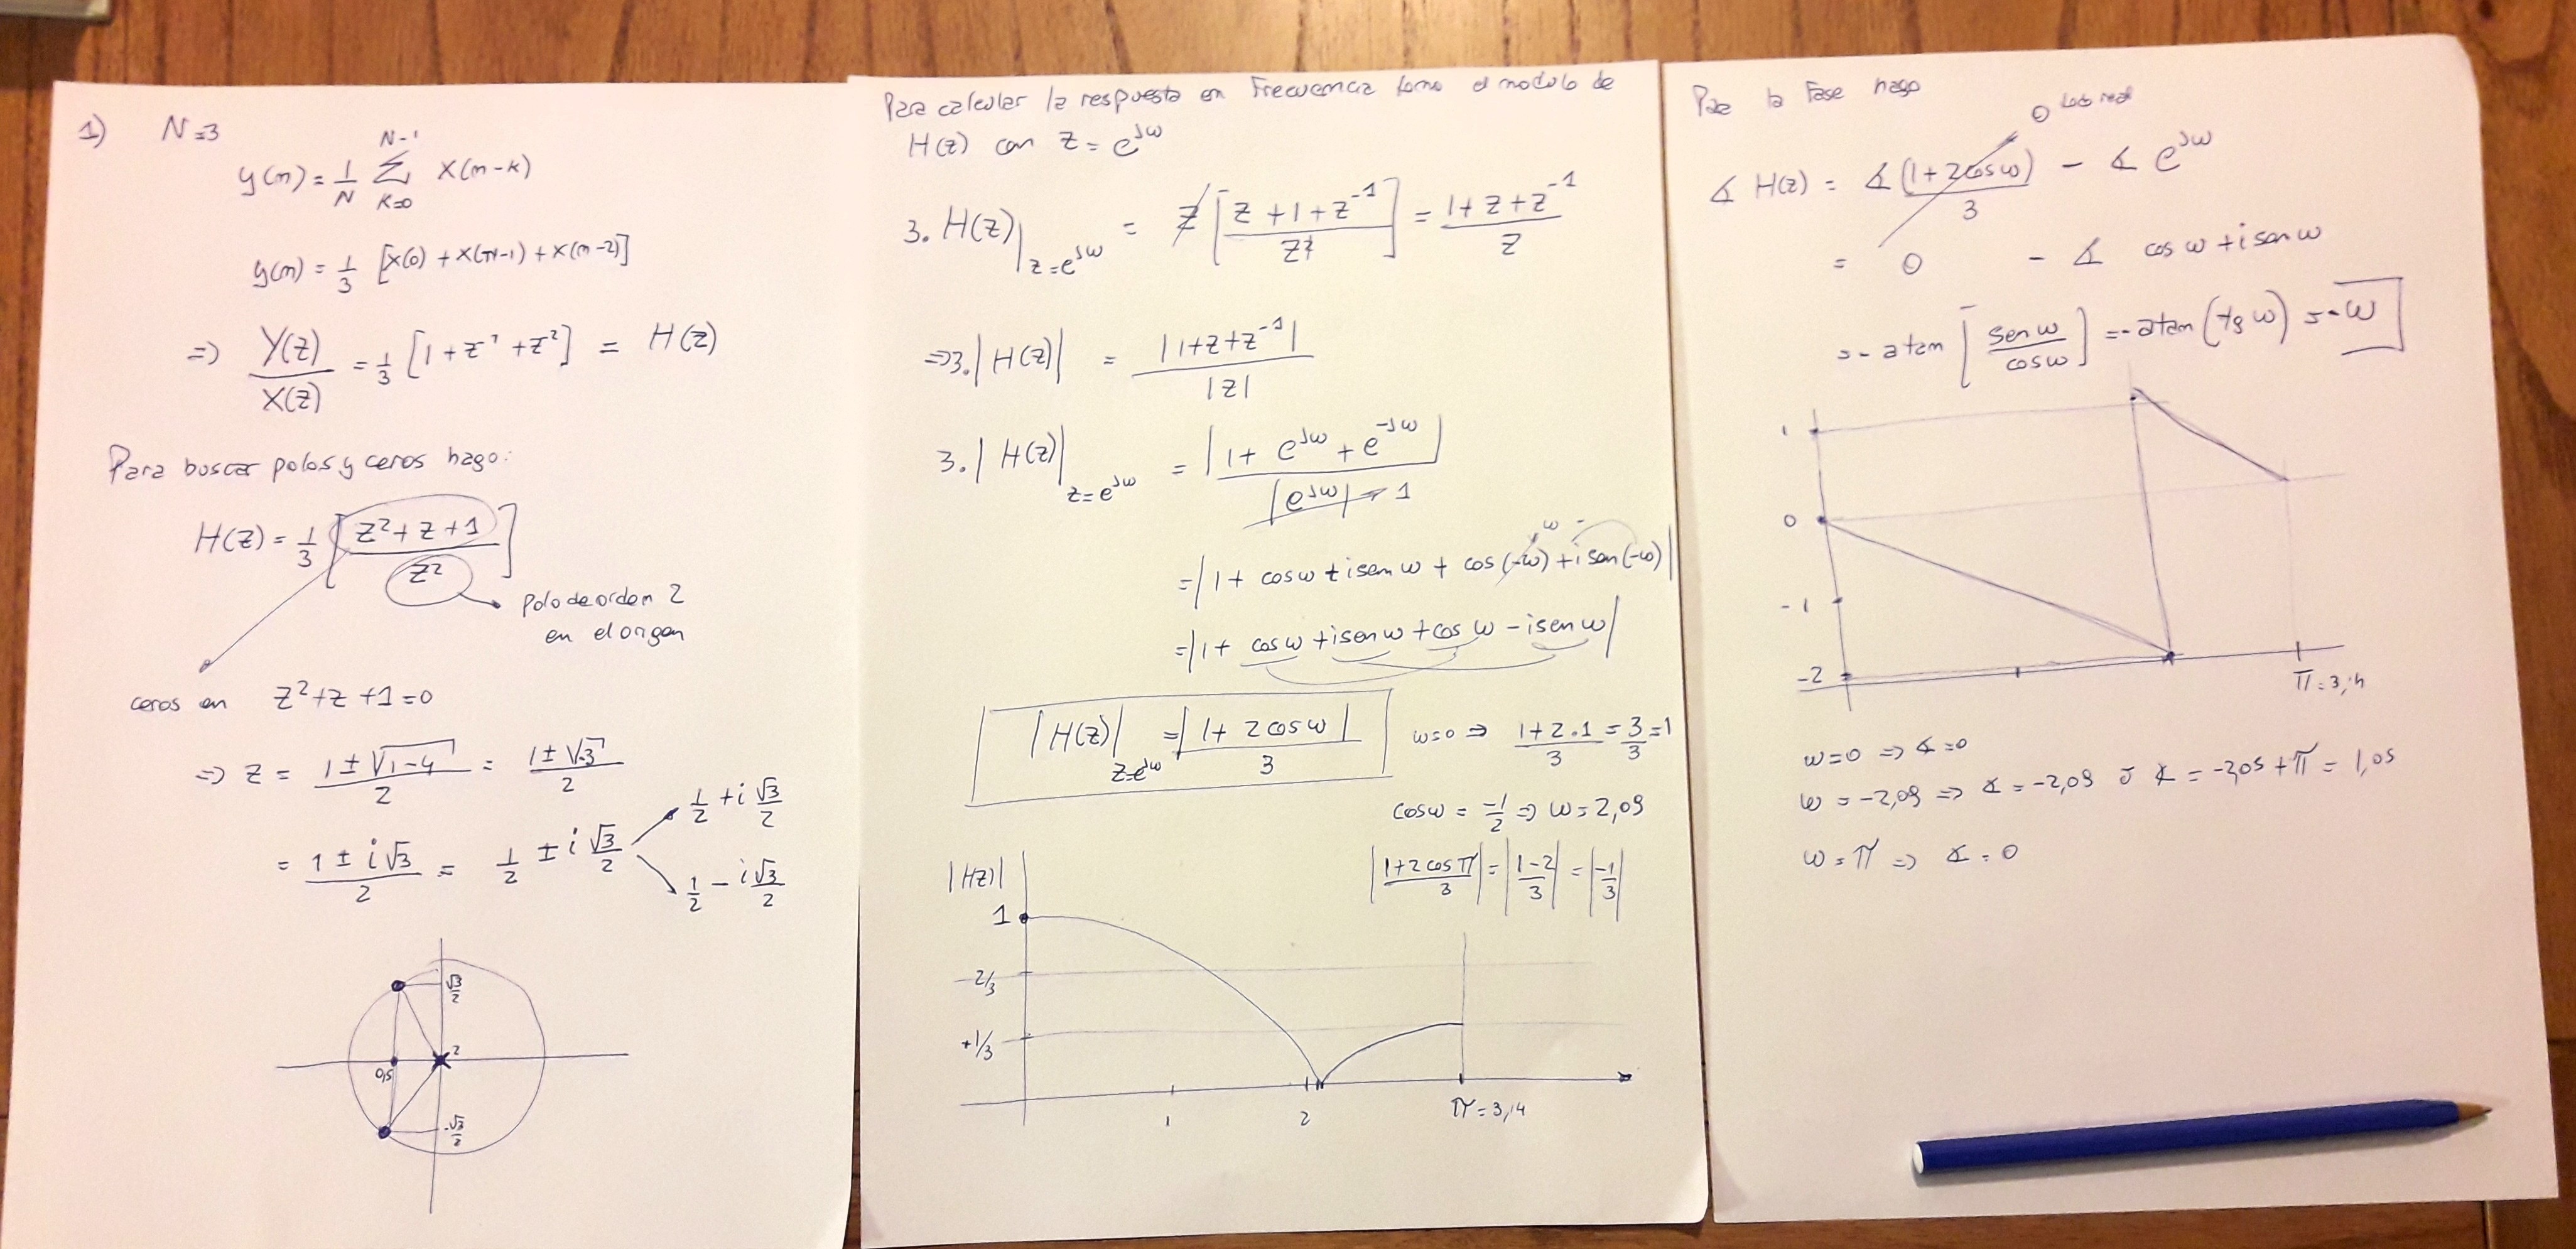 1) N=3
y(n) = 1/N N-1 Σ K=0 X(n-k)
y(n) = 1/3 [X(0) + X(n-1) + X(n-2)]
=> Y(z)/X(z) = 1/3 [1 + z^-1 + z^-2] = H(z)
Para buscar polos y ceros hago:
H(z) = 1/3 [(z² + z + 1)/z²]
polo de orden 2
en el origen
ceros en z² + z + 1 = 0
=> z = (1 ± √(1-4))/2 = (1 ± √-3)/2
= (1 ± i√3)/2 = 1/2 ± i √3/2
1/2 + i √3/2
1/2 - i √3/2
√3/2
2
0,5
-√3/2
Para calcular la respuesta en Frecuencia tomo el modulo de
H(z) con z = e^jω
3. H(z)|z=e^jω = z [(z + 1 + z^-1)/z²] = (1 + z + z^-1)/z
=> 3. |H(z)| = |1 + z + z^-1| / |z|
3. |H(z)|z=e^jω = |1 + e^jω + e^-jω| / |e^jω| → 1
ω
= |1 + cos ω + i sen ω + cos(-ω) + i sen(-ω)|
= |1 + cos ω + i sen ω + cos ω - i sen ω|
|H(z)|z=e^jω = |1 + 2 cos ω| / 3
ω=0 => (1 + 2.1)/3 = 3/3 = 1
cos ω = -1/2 => ω = 2,09
|(1 + 2 cos π)/3| = |(1-2)/3| = |-1/3|
|H(z)|
1
2/3
+1/3
1
2
π = 3,14
Para la Fase hago
0 es real
∡ H(z) = ∡ (1 + 2 cos ω)/3 - ∡ e^jω
= 0 - ∡ cos ω + i sen ω
= - atan [sen ω / cos ω] = - atan (tg ω) = -ω
1
0
-1
-2
π = 3,14
ω=0 => ∡=0
ω = -2,09 => ∡ = -2,09 ó ∡ = -2,05 + π = 1,05
ω = π => ∡ = 0